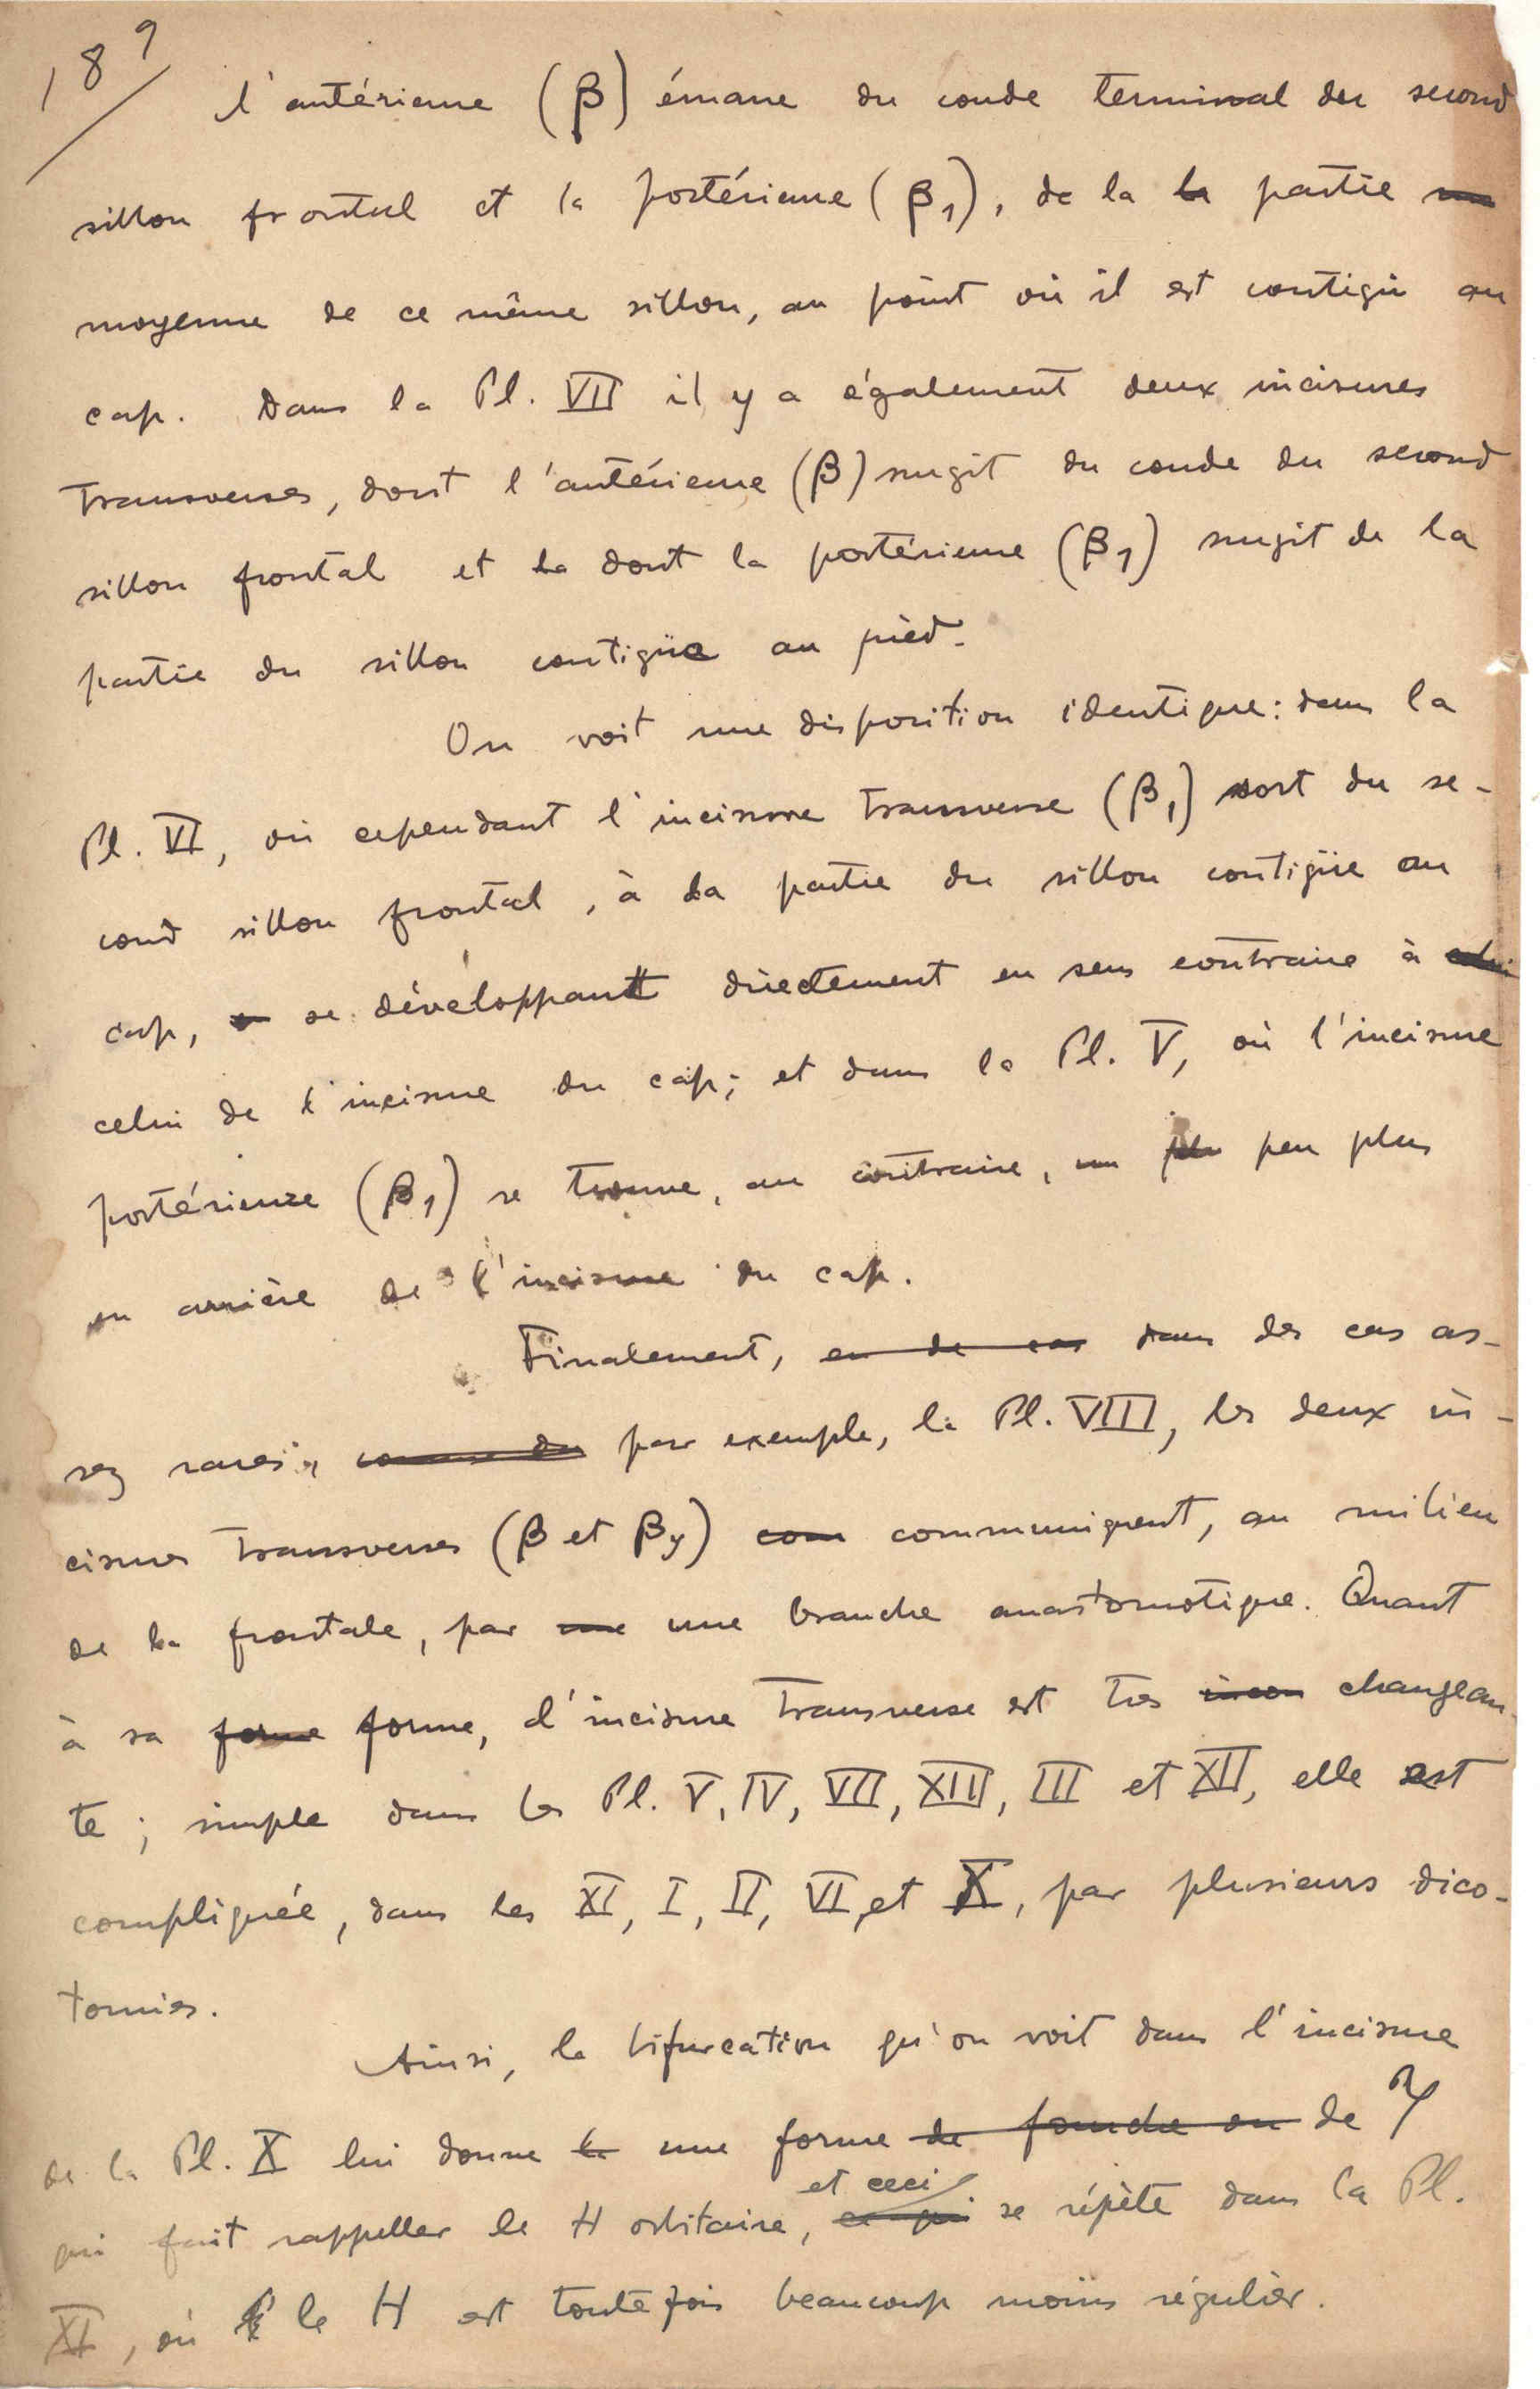 189
l'antérieure (β) émane du coude terminal du second
sillon frontal et la postérieure (β1), de la la partie
moyenne de ce même sillon, au point où il est contigü au
cap. Dans la Pl. VII il y a également deux incisures
transverses, dont l'antérieure (β) surgit du coude du second
sillon frontal et la dont la postérieure (β1) surgit de la
partie du sillon contigüe au pied.
On voit une disposition identique: dans la
Pl. VI, où cependant l'incisure transverse (β1) sort du se-
cond sillon frontal, à la partie du sillon contigüe au
cap, se développant directement en sens contraire à celui
celui de l'incisure du cap; et dans la Pl. V, où l'incisure
postérieure (β1) se trouve, au contraire, un plu peu plus
en arrière de l'incisure du cap.
Finalement, en de cas dans des cas as-
sez rares, comme da par exemple, la Pl. VIII, les deux in-
cisures transverses (β et β1) com communiquent, au milieu
de la frontale, par une une branche anastomotique. Quant
à sa forme forme, l'incisure transverse est très incon changean-
te; simple dans les Pl. V, IV, VII, XIII, III et XII, elle est
compliquée, dans les XI, I, II, VI, et X, par plusieurs dico-
tomies.
Ainsi, la bifurcation qu'on voit dans l'incisure
de la Pl. X lui donne la une forme de fourche ou de Y
et ceci
qui fait rappeller le H orbitaire, ce qui se répète dans la Pl.
XI, où le H est toutefois beaucoup moins régulier.